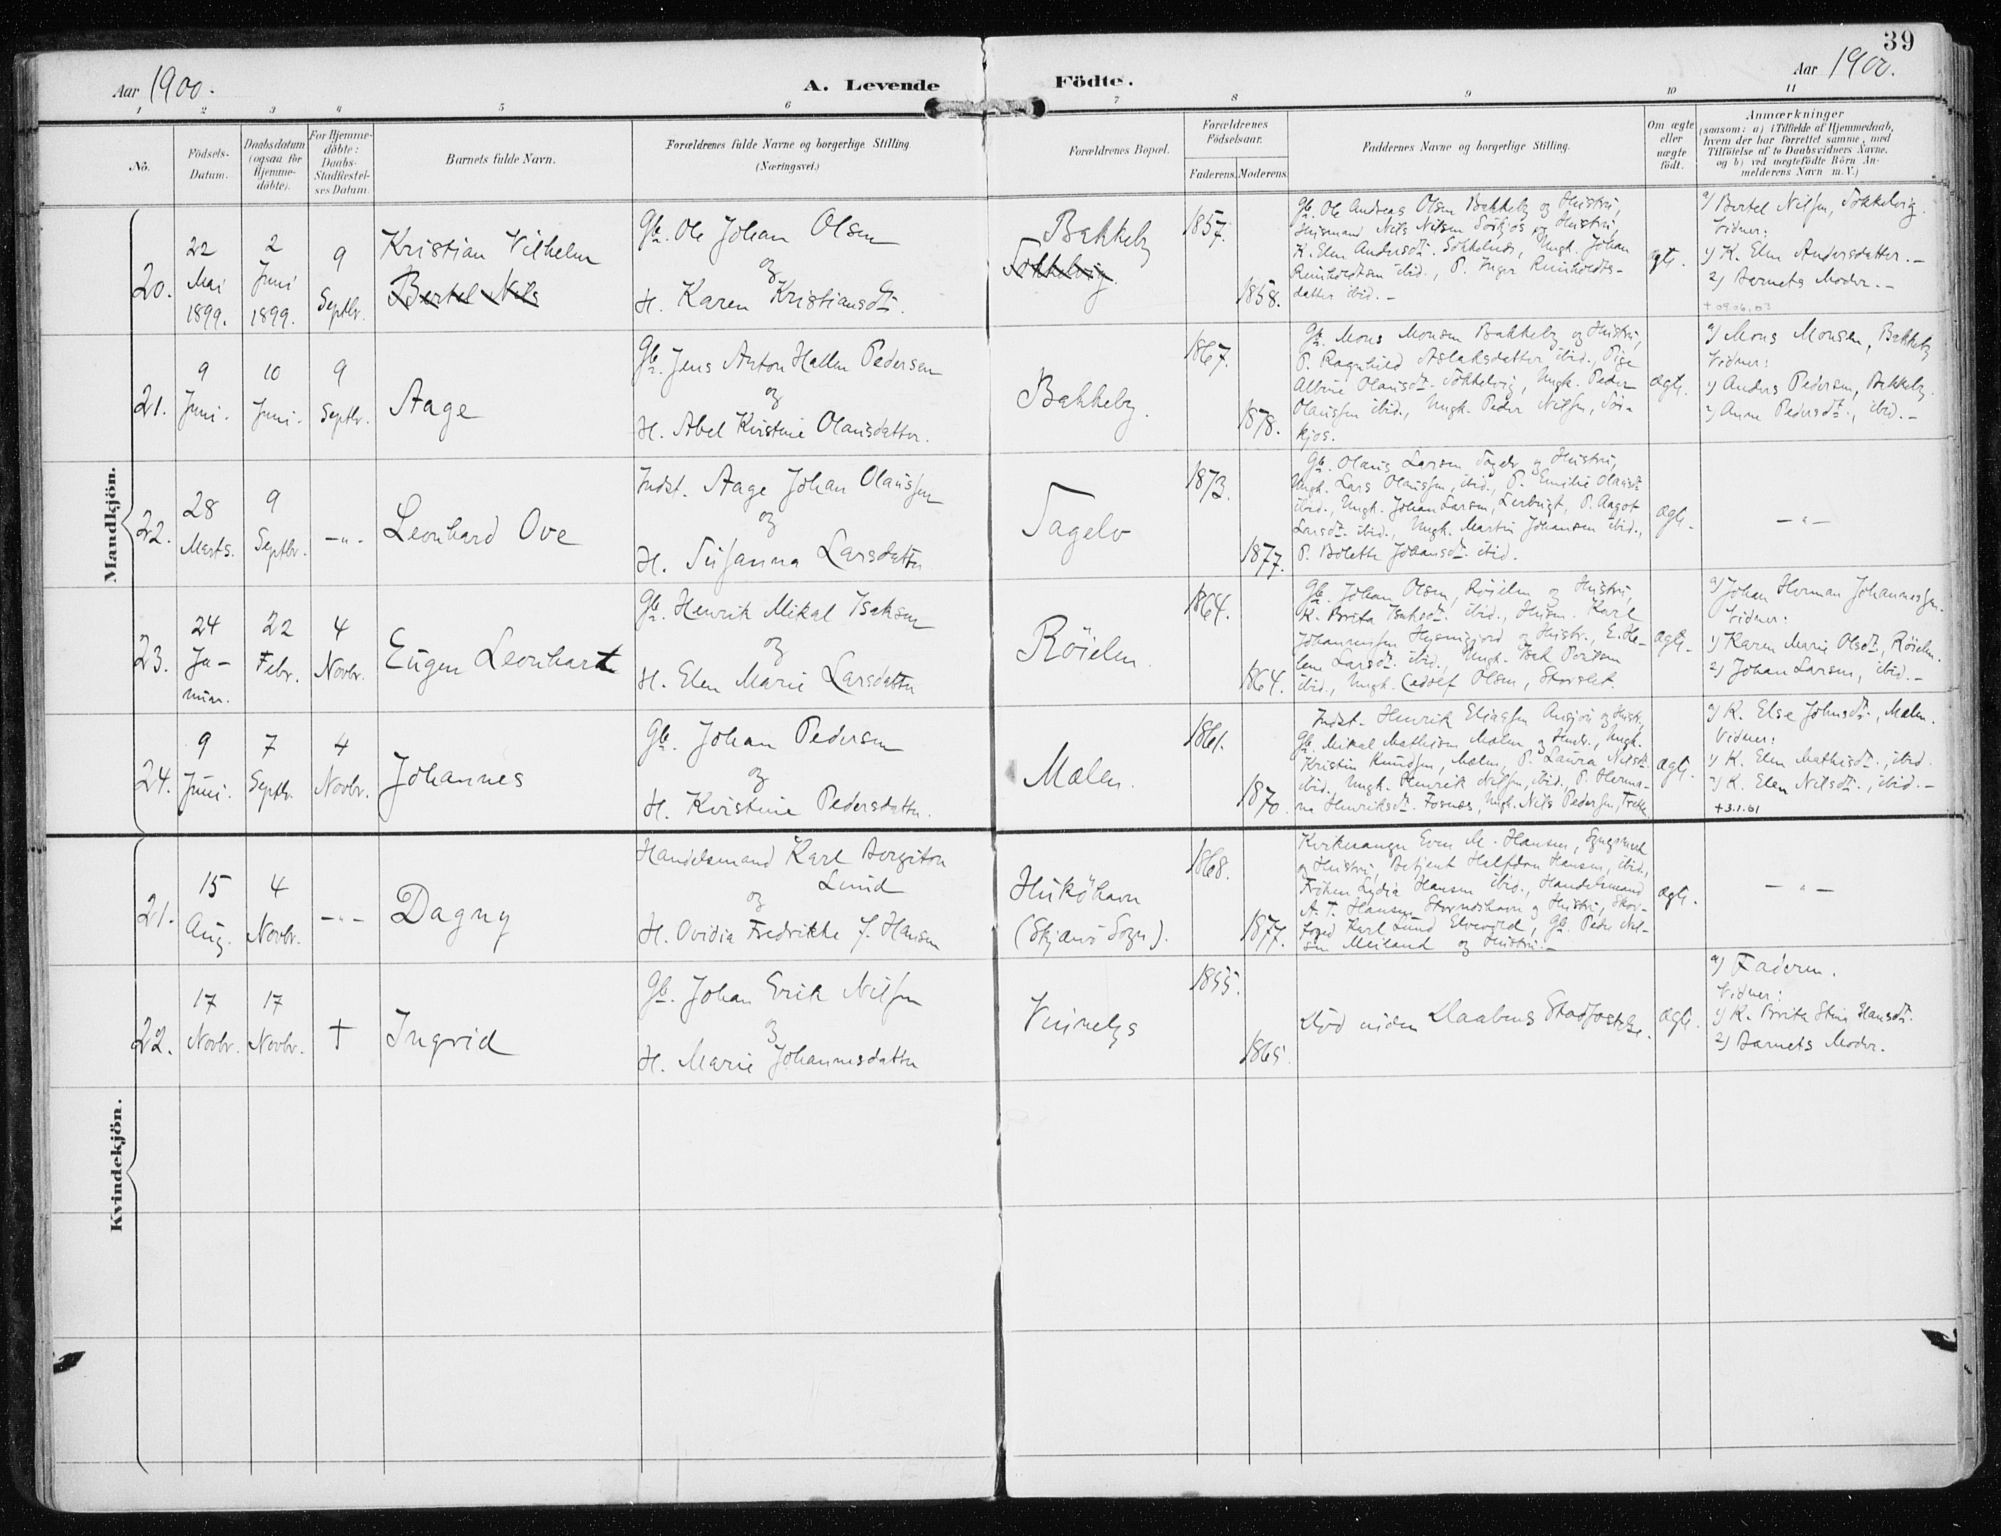 39
Aar 1900.
A. Levende
Födte.
Aar 1900.
1 2 3 4 5 6 7 8 9 10 11
No.
Födsels-
Datum.
Daabsdatum
(ogsaa for
Hjemme-
döbte).
For Hjemme-
döbte:
Daabs-
Stadfæstel-
ses Datum.
Barnets fulde Navn.
Forældrenes fulde Navne og borgerlige Stilling
(Næringsvei.)
Forældrenes Bopæl.
Forældrenes
Födselsaar.
Faderens.
Moderens.
Faddernes Navne og borgerlige Stilling.
Om ægte
eller
uægte
födt.
Anmærkninger
(saasom: a) i Tilfælde af Hjemmedaab,
hvem der har forrettet samme, med
Tilföielse af to Daabsvidners Navne,
og b) ved uægtefödte Börn An-
melderens Navn m. V.)
Mandkjön.
20.
22
Mai
1899.
2
Juni
1899.
9
Septbr.
Kristian Vilhelm
Bertel Nils
Gb. Ole Johan Olsen
og
H. Karen Kristiansdt.
Bakkeby
Sokkelvig
1857.
1858.
Gb. Ole Andreas Olsen Bakkeby og Hustru,
Husmand Nils Nilsen Sörkjos og Hustru,
K. Elen Andersdt. Sokkelvig, Ungk. Johan
Reinholdtsen ibid., P. Inger Reinholdts-
datter ibid. -
ægte.
a) Bertel Nilsen, Sokkelvig.
Vidner:
1) K. Elen Andersdatter. -
2) Barnets Moder. -
+ 09.06.03
21.
9
Juni.
10
Juni.
9
Septbr.
Aage
Gb. Jens Anton Hallen Pedersen
og
H. Abel Kristine Olausdatter.
Bakkeby.
1867.
1878.
Gb. Mons Monsen Bakkeby og Hustru,
P. Ragnhild Aslaksdatter ibid., Pige
Albine Olausdt. Sokkelvig, Ungk. Peder
Olaussen ibid., Ungk. Peder Nilsen, Sör-
kjos.
ægte.
a) Mons Monsen, Bakkeby
Vidner:
1) Anders Pedersen, Bakkeby.
2) Anne Pedersdt., ibid. -
22.
28
Marts.
9
Septbr.
-"-
Leonhard Ove
Indst. Aage Johan Olaussen
og
H. Susanna Larsdatter
Tagelv
1873.
1877.
Gb. Olaus Larsen Tagelv og Hustru,
Ungk. Lars Olaussen, ibid., P. Emilie Olausdt.
ibid., Ungk. Johan Larsen, Lerbugt, P. Aagot
Larsdt. ibid., Ungk. Martin Johansen ibid.,
P. Bolette Johansdt. ibid.
ægte.
-"-
23.
24
Ja-
nuar.
22
Febr.
4
Novbr.
Eugen Leonhart
Gb. Henrik Mikal Isaksen
og
H. Elen Marie Larsdatter
Röielen.
1864.
1864.
Gb. Johan Olsen, Röielen og Hustru,
K. Brita Isaksdt. ibid., Husm. Karl
Johannessen og Hustr., E. He-
lene Larsdt. ibid., Ungk. Isak
ibid., Ungk. Olsen, Storslet.
ægte.
a) Johan Herman Johannessen.
Vidner:
1) Karen Marie Olsdt., Röielen.
2) Johan Larsen, ibid. -
24.
9
Juni.
7
Septbr.
4
Novbr.
Johannes
Gb. Johan Pedersen
og
H. Kristine Pedersdatter.
Mælen.
1861.
1870.
Indst. Henrik Eliassen og Hustr.,
Gb. Mikal Mathisen Mælen og Hustr., Ungk.
Kristin Knudsen, Mælen, P. Laura Nilsdt.
ibid., Ungk. Henrik Nilsen, ibid., P. Herma-
na Henriksdt. Fosnæs, Ungk. Nils Pedersen,
ægte.
a) K. Else Johnsdt., Mælen.
Vidner:
1) K. Elen Mathisdt., ibid.
2) K. Elen Nilsdt., ibid. -
+3.1.01
Kvindekjön.
21.
15
Aug.
4
Novbr.
-"-
Dagny
Handelsmand Karl Bergiton
Lund
og
H. Ovidia Fredrikke J. Hansen
Huköhavn
(Skjærvö Sogn).
1868.
1877.
Kirkesanger Even M. Hansen,
og Hustru, Betjent Halfdan Hansen, ibid.,
Fröken Lydia Hansen ibid., Handelsmand
A. T. Hansen og Hustru, Skov-
foged Karl Lund Elvevold, Gb. Peder Nil-
sen Meiland og Hustru. -
ægte.
-"-
22.
17
Novbr.
17
Novbr.
+
Ingrid
Gb. Johan Erik Nilsen
og
H. Marie Johannesdatter
Vinnelys
1855.
1865.
Död uden Daabens Stadfæstelse.
ægte.
a) Faderen.
Vidner:
1) K. Brita Stina Hansdt.
2) Barnets Moder.